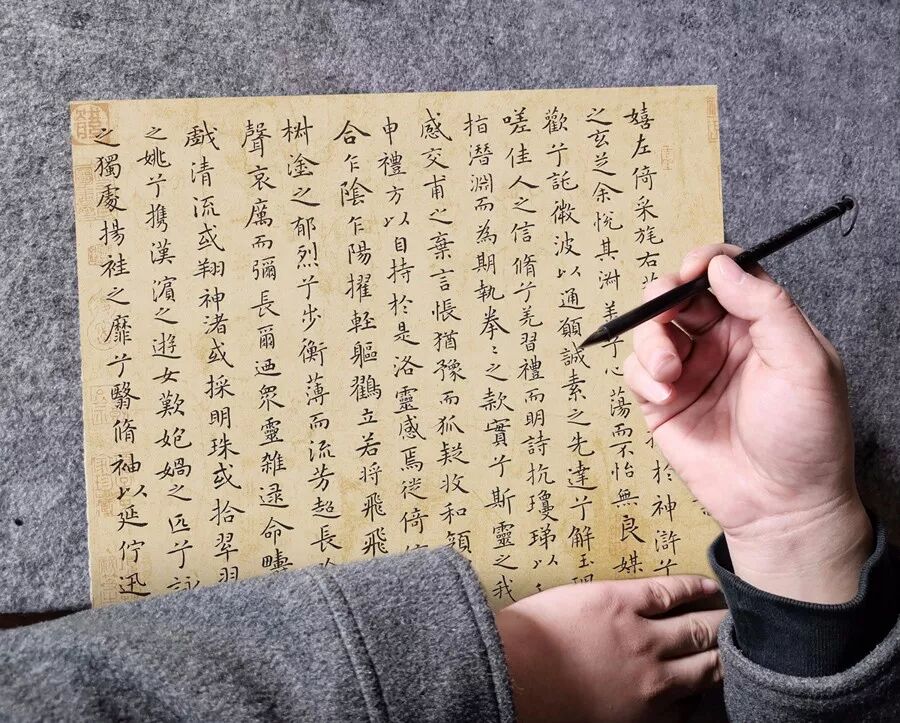 嬉左倚采旄右於神滸兮
之玄芝余悅其淑美兮心蕩而不怡無良媒
歡兮託微波以通願誠素之先達兮解玉
嗟佳人之信脩兮羌習禮而明詩抗瓊珶以
指潛淵而為期執拳〻之款實兮斯靈之我
感交甫之棄言悵猶豫而狐疑收和顏
申禮方以自持於是洛靈感焉徙倚
合乍陰乍陽擢輕軀鸛立若將飛飛
椒塗之郁烈兮步衡薄而流芳超長
聲哀厲而彌長爾迺眾靈雜遝命疇
戲清流或翔神渚或採明珠或拾翠羽
之姚兮携漢濱之遊女歎妃媧之匹兮詠
之獨處揚袿之靡兮翳脩袖以延佇迅